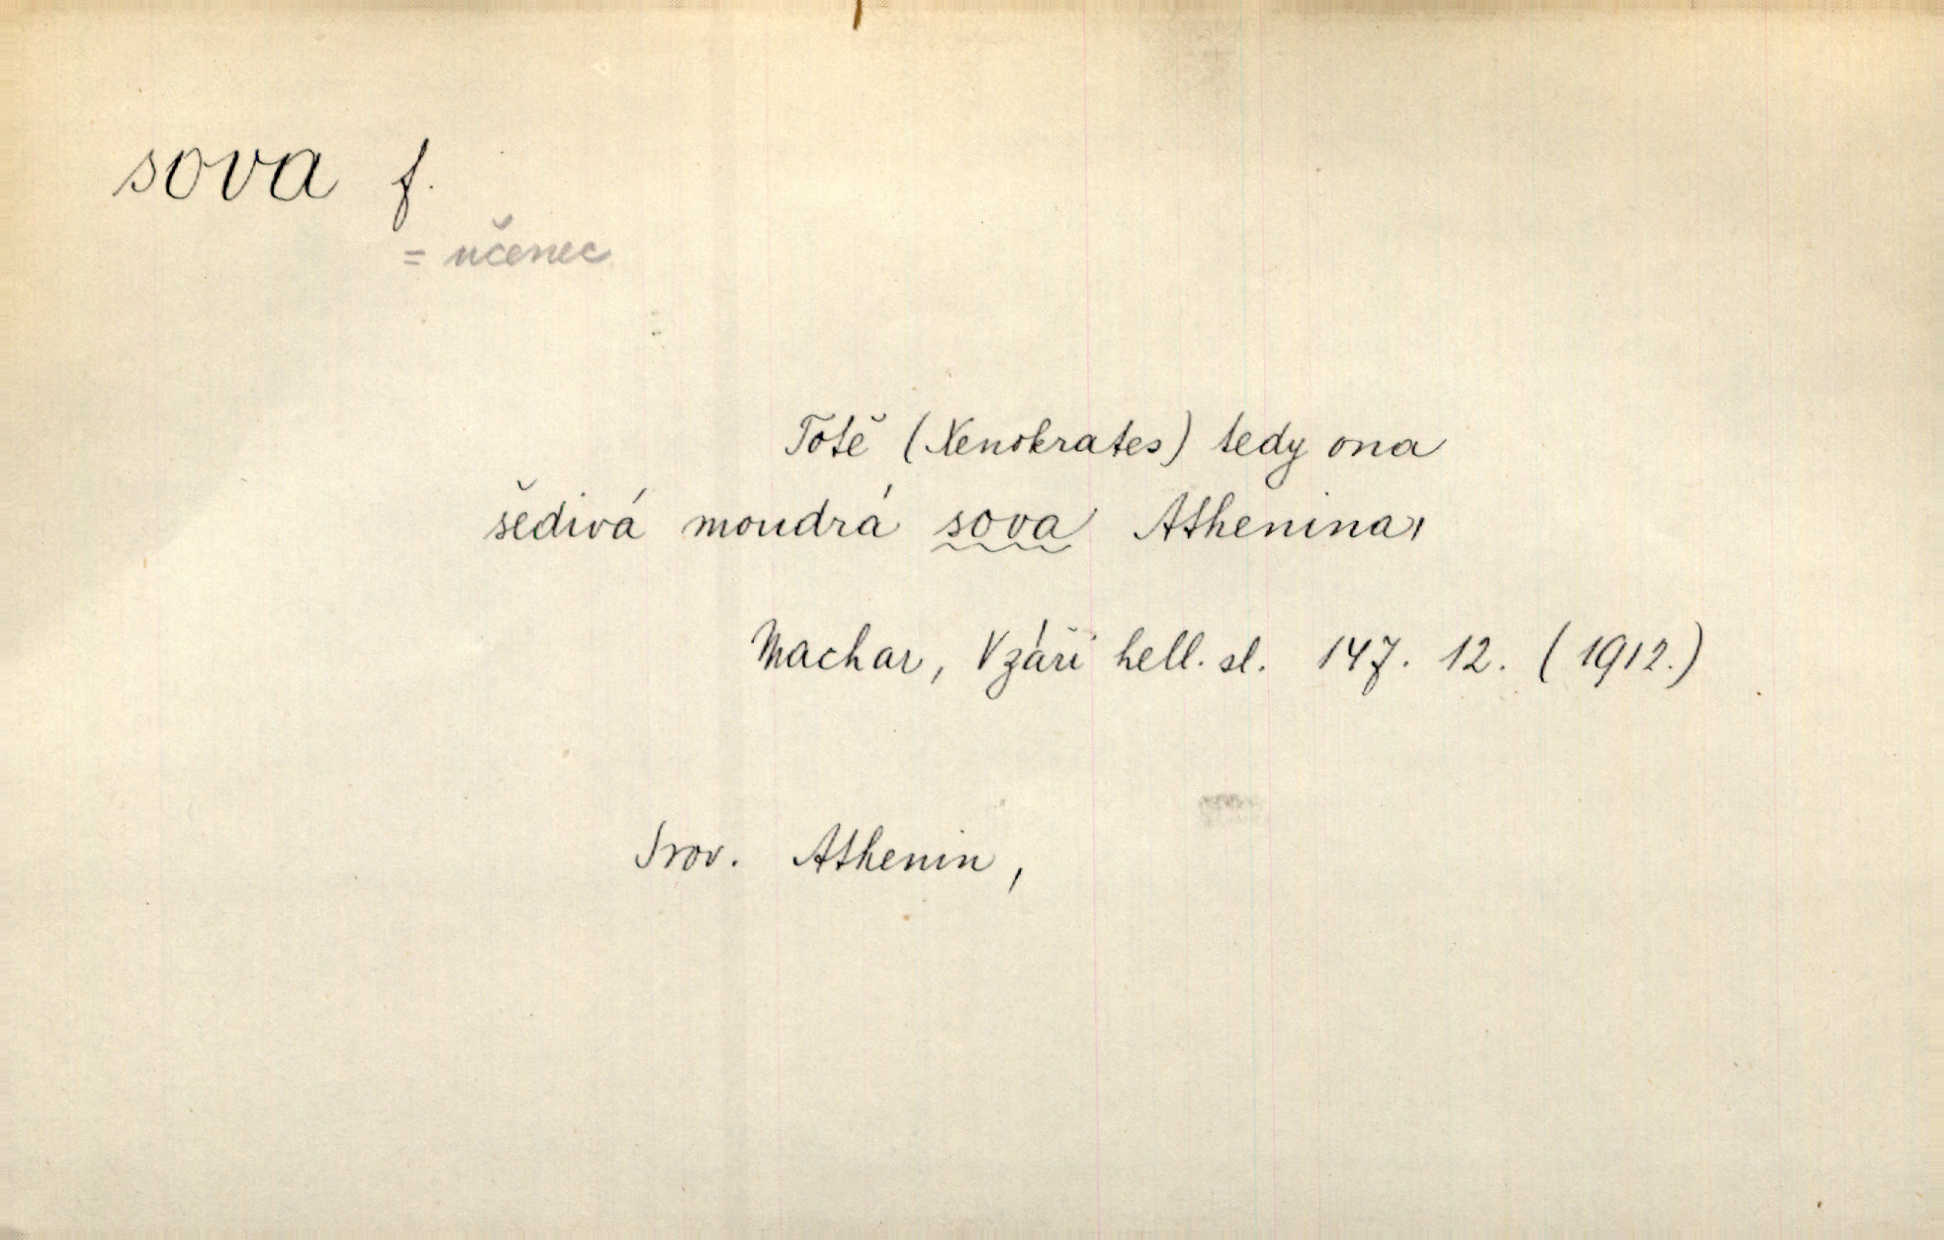 sova f.
= učenec
Totě (Xenokrates) tedy ona
šedivá moudrá sova Athenina,
Machar, V záři hell. sl. 147. 12. (1912.)
Srov. Athenin,